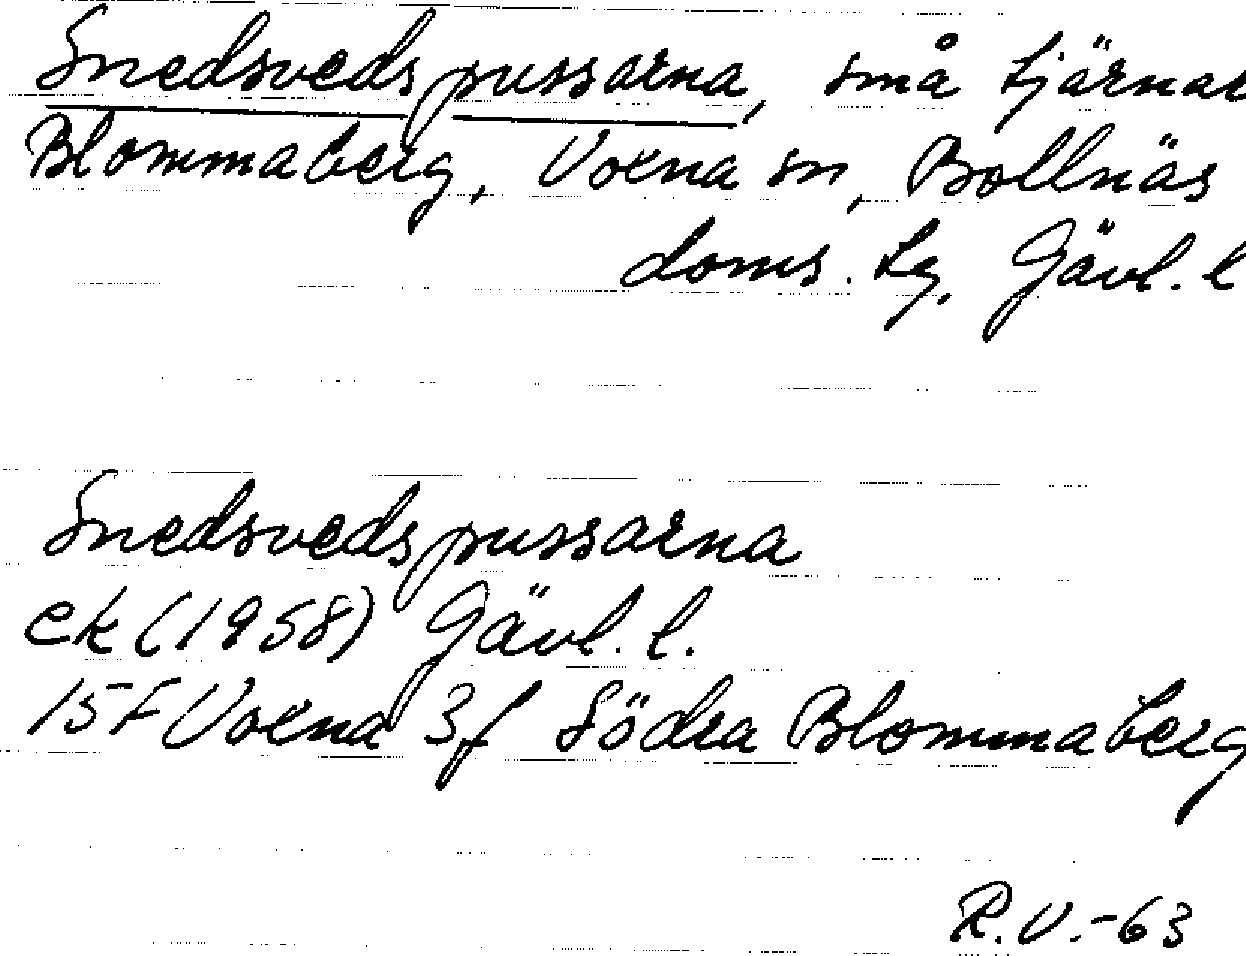 Snedsvedspussarna, små tjärnar
Blommaberg, Voxna sn, Bollnäs
doms. tg, Gävl. l
Snedsvedspussarna
ek (1958) Gävl. l.
15F Voxna 3f Södra Blommaberg
R.V.-63